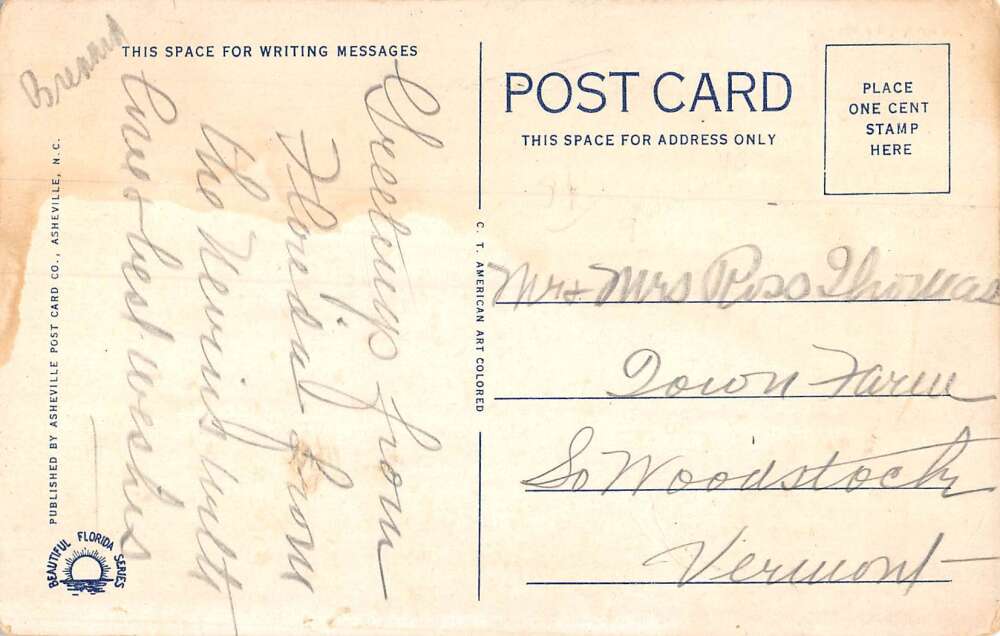 THIS SPACE FOR WRITING MESSAGES
Greetings from
Florida from
the Nevins with
love & best wishes
PUBLISHED BY ASHEVILLE POST CARD CO., ASHEVILLE, N. C.
BEAUTIFUL FLORIDA SERIES
C. T. AMERICAN ART COLORED
POST CARD
THIS SPACE FOR ADDRESS ONLY
PLACE
ONE CENT
STAMP
HERE
Mr & Mrs Ross Thomas
Town Farm
So Woodstock
Vermont